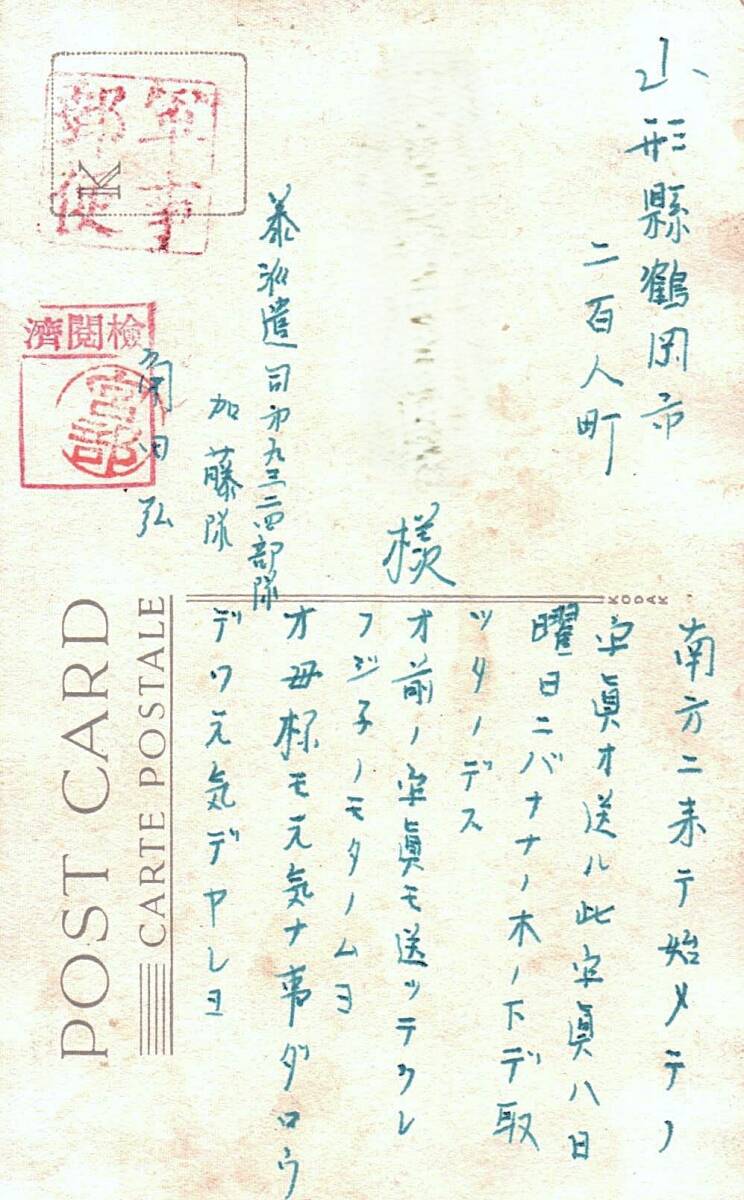 山形縣鶴岡市
二百人町
様
派遣司第九三二四部隊
加藤隊
角田弘
軍事
郵便
K
検閲濟
KODAK
POST CARD
CARTE POSTALE
南方ニ来テ始メテノ
写眞オ送ル此写眞ハ日
曜日ニバナナノ木ノ下デ取
ッタノデス
オ前ノ写眞モ送ッテクレ
フジ子ノモタノムヨ
オ母様モ元気ナ事ダロウ
デワ元気デヤレヨ